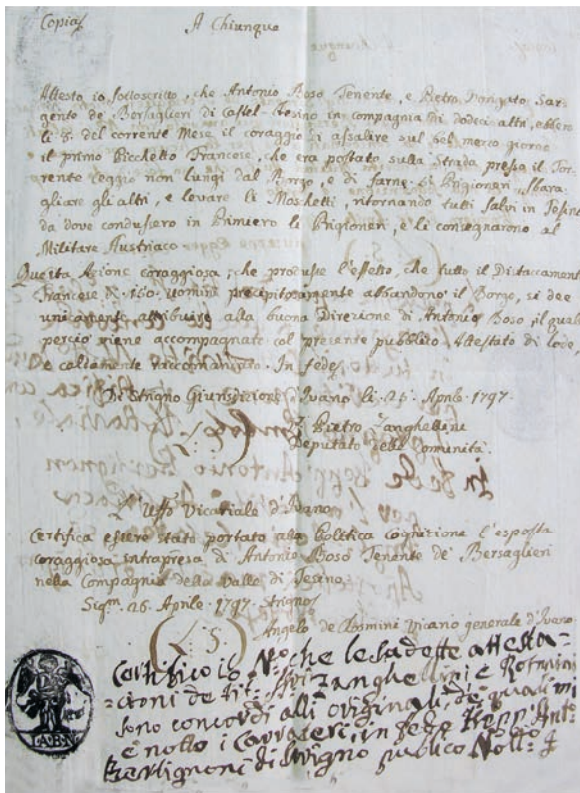 Copia
A Chiunque
Attesto io sottoscritto, che Antonio Boso Tenente, e Pietro Dorigato Sar-
gente de Bersaglieri di Castel-Tesino in compagnia di dodeci altri, ebbero
li 3. del corrente Mese il coraggio di assalire sul bel mezzo giorno
il primo Picchetto Francese, che era postato sulla Strada presso il Tor-
rente Ceggio non lungi dal Borgo, e di farne 6 Prigionieri, sbara-
gliare gli altri, e levare li Moschetti, ritornando tutti salvi in Tesino
da dove condussero in Primiero li Prigionieri, e li consegnarono al
Militare Austriaco.
Questa Azione coraggiosa, che produsse l'effetto, che tutto il Distaccamento
Francese di 160. uomini precipitosamente abbandonò il Borgo, si dee
unicamente attribuire alla buona Direzione di Antonio Boso, il quale
perciò viene accompagnato col presente pubblico Attestato di lode,
e caldamente raccomandato. In fede
Di Strigno Giurisdizione d'Ivano li 25. Aprile 1797.
Pietro Zanghellini
Deputato delle Comunità.
L'Uffo Vicariale d'Ivano
Certifica essere stato portato alla Politica cognizione l'esposta
coraggiosa intrapresa di Antonio Boso Tenente de' Bersaglieri
nella Compagnia della Valle di Tesino.
Sigm 26. Aprile 1797. Strigno
(L. S.)
Angelo de Romini Vicario generale d'Ivano
Certifico io Noº che le sudette attesta-
cioni de tit: Sri Zanghellini e Romini
sono concordi alli originali, de quali mi
è notto i Carateri, in fede Giepp Antº
Bertignoni di Strigno publico Nottº